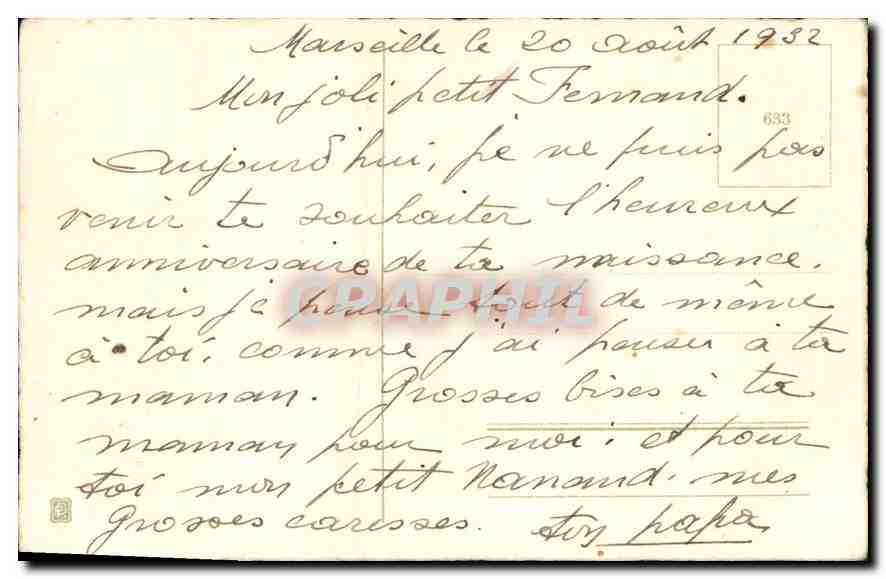 Marseille le 20 août 1932
Mon joli petit Fernand.
633
aujourd'hui, je ne puis pas
venir te souhaiter l'heureux
anniversaire de ta naissance.
mais je pense tout de même
CPAPHIL
à toi. comme j'ai penser à ta
maman. Grosses bises à ta
maman pour moi. et pour
toi mon petit Nanand. mes
Grosses caresses. ton papa